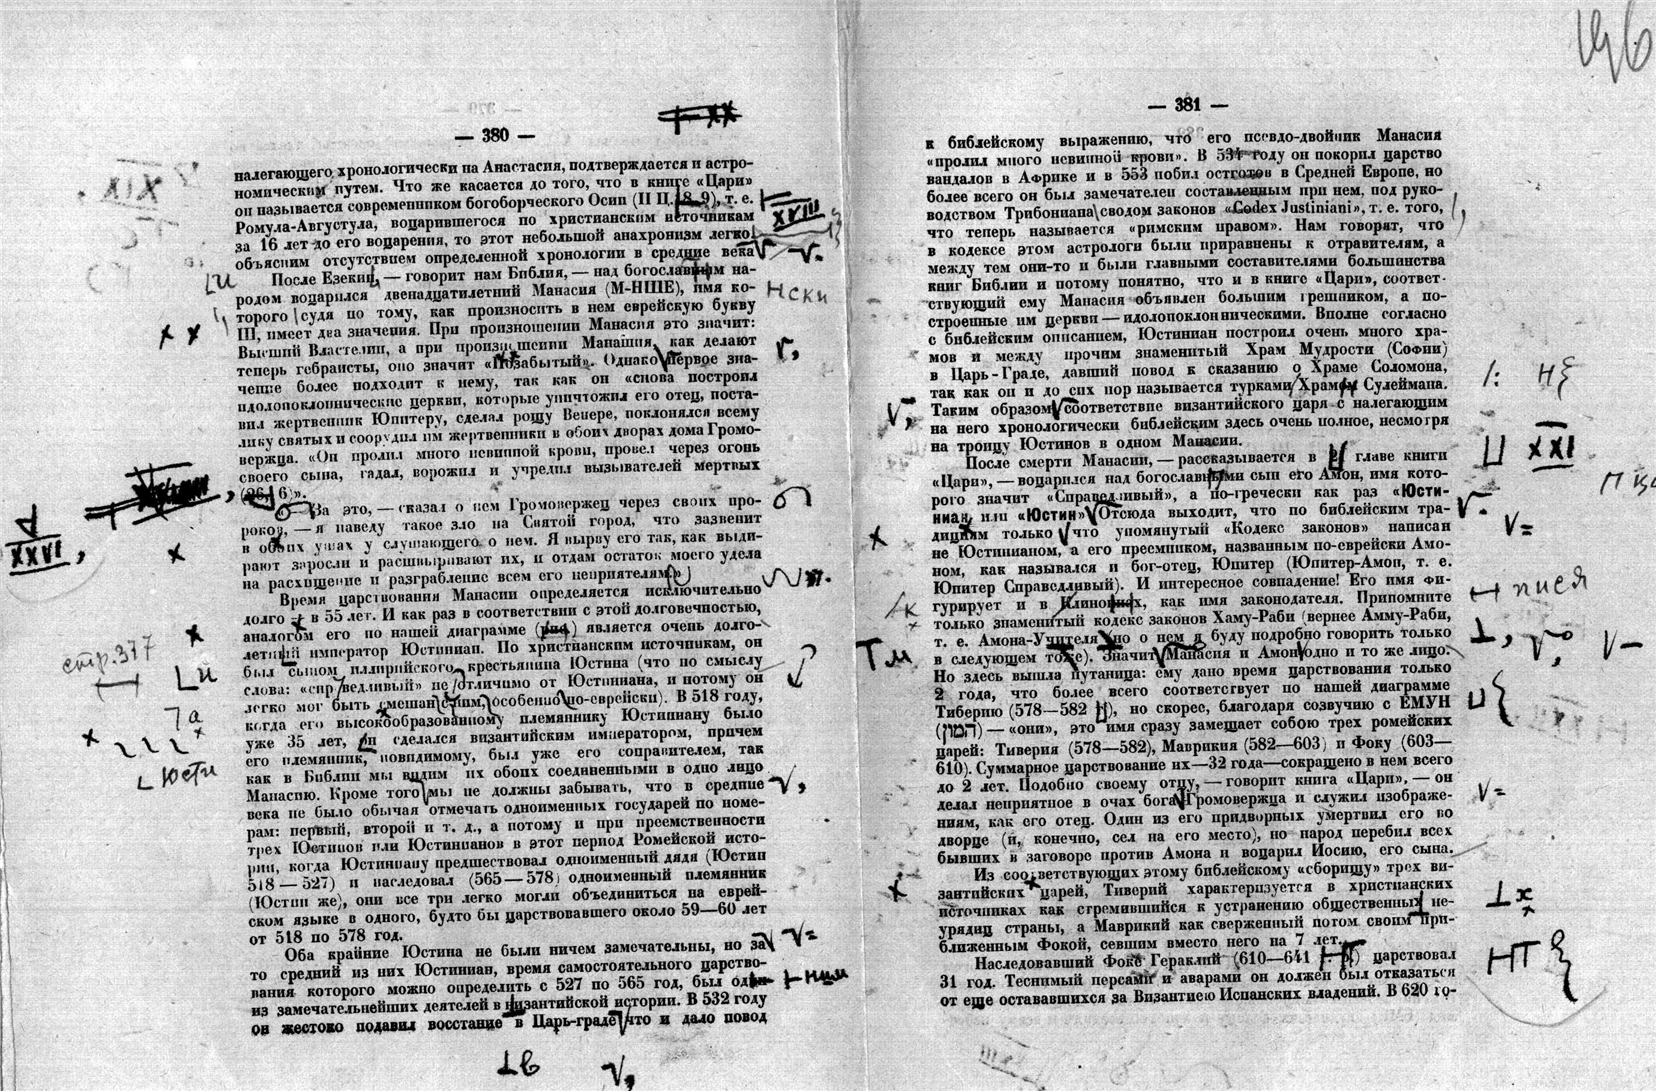 — 380 —
налегающего хронологически на Анастасия, подтверждается и астро-
номическим путем. Что же касается до того, что в книге «Цари»
он называется современником богоборческого Осии (II Ц. 9), т. е.
Ромула-Августула, воцарившегося по христианским источникам
за 16 лет до его воцарения, то этот небольшой анахронизм легко
объясним отсутствием определенной хронологии в средние века
После Езекии, — говорит нам Библия, — над богославным на-
родом воцарился двенадцатилетний Манасия (М-НШЕ), имя ко-
торого судя по тому, как произносить в нем еврейскую букву
Ш, имеет два значения. При произношении Манасия это значит:
Высший Властелин, а при произношении Манашия, как делают
теперь гебраисты, оно значит «Позабытый». Однако первое зна-
чение более подходит к нему, так как он «снова построил
идолопоклоннические церкви, которые уничтожил его отец, поста-
вил жертвенник Юпитеру, сделал рощу Венере, поклонялся всему
лику святых и соорудил им жертвенники в обоих дворах дома Громо-
вержца. «Он пролил много невинной крови, провел через огонь
своего сына, гадал, ворожил и учредил вызывателей мертвых
6)».
— За это, — сказал о нем Громовержец через своих про-
роков, — я наведу такое зло на Святой город, что зазвенит
в обоих ушах у слушающего о нем. Я вырву его так, как выди-
рают заросли и расшвыривают их, и отдам остаток моего удела
на расхищение и разграбление всем его неприятелям.»
Время царствования Манасии определяется исключительно
долго — в 55 лет. И как раз в соответствии с этой долговечностью,
аналогом его по нашей диаграмме (рис.) является очень долго-
летний император Юстиниан. По христианским источникам, он
был сыном иллирийского крестьянина Юстина (что по смыслу
слова: «справедливый» не отличимо от Юстиниана, и потому он
легко мог быть смешан с ним, особенно по-еврейски). В 518 году,
когда его высокообразованному племяннику Юстиниану было
уже 35 лет, он сделался византийским императором, причем
его племянник, повидимому, был уже его соправителем, так
как в Библии мы видим их обоих соединенными в одно лицо
Манасию. Кроме того мы не должны забывать, что в средние
века не было обычая отмечать одноименных государей по номе-
рам: первый, второй и т. д., а потому и при преемственности
трех Юстинов или Юстинианов в этот период Ромейской исто-
рии, когда Юстиниану предшествовал одноименный дядя (Юстин
518 — 527) и наследовал (565 — 578) одноименный племянник
(Юстин же), они все три легко могли объединиться на еврей-
ском языке в одного, будто бы царствовавшего около 59—60 лет
от 518 по 578 год.
Оба крайние Юстина не были ничем замечательны, но за
то средний из них Юстиниан, время самостоятельного царство-
вания которого можно определить с 527 по 565 год, был
из замечательнейших деятелей в византийской истории. В 532 году
он жестоко подавил восстание в Царь-граде что и дало повод
XVIII
нски
XXVI,
стр. 377
а
Юсти
ним
в
— 381 —
к библейскому выражению, что его псевдо-двойник Манасия
«пролил много невинной крови». В 534 году он покорил царство
вандалов в Африке и в 553 побил остготов в Средней Европе, но
более всего он был замечателен составленным при нем, под руко-
водством Трибониана сводом законов «Codex Justiniani», т. е. того,
что теперь называется «римским правом». Нам говорят, что
в кодексе этом астрологи были приравнены к отравителям, а
между тем они-то и были главными составителями большинства
книг Библии и потому понятно, что и в книге «Цари», соответ-
ствующий ему Манасия объявлен большим грешником, а по-
строенные им церкви — идолопоклонническими. Вполне согласно
с библейским описанием, Юстиниан построил очень много хра-
мов и между прочим знаменитый Храм Мудрости (Софии)
в Царь-Граде, давший повод к сказанию о Храме Соломона,
так как он и до сих пор называется турками Храмом Сулеймана.
Таким образом соответствие византийского царя с налегающим
на него хронологически библейским здесь очень полное, несмотря
на троицу Юстинов в одном Манасии.
После смерти Манасии, — рассказывается в главе книги
«Цари», — воцарился над богославными сын его Амон, имя кото-
рого значит «Справедливый», а по-гречески как раз «Юсти-
ниан или «Юстин» Отсюда выходит, что по библейским тра-
дициям только что упомянутый «Кодекс законов» написан
не Юстинианом, а его преемником, названным по-еврейски Амо-
ном, как назывался и бог-отец, Юпитер (Юпитер-Амон, т. е.
Юпитер Справедливый). И интересное совпадение! Его имя фи-
гурирует и в клинописях, как имя законодателя. Припомните
только знаменитый кодекс законов Хаму-Раби (вернее Амму-Раби,
т. е. Амона-Учителя но о нем я буду подробно говорить только
в следующем томе). Значит Манасия и Амон одно и то же лицо.
Но здесь вышла путаница: ему дано время царствования только
2 года, что более всего соответствует по нашей диаграмме
Тиберию (578—582 ), но скорее, благодаря созвучию с ЕМУН
(המון) — «они», это имя сразу замещает собою трех ромейских
царей: Тиверия (578—582), Маврикия (582—603) и Фоку (603—
610). Суммарное царствование их—32 года—сокращено в нем всего
до 2 лет. Подобно своему отцу, — говорит книга «Цари», — он
делал неприятное в очах бога Громовержца и служил изображе-
ниям, как его отец. Один из его придворных умертвил его во
дворце (и, конечно, сел на его место), но народ перебил всех
бывших в заговоре против Амона и воцарил Иосию, его сына.
Из соответствующих этому библейскому «сборищу» трех ви-
зантийских царей, Тиверий характеризуется в христианских
источниках как стремившийся к устранению общественных не-
урядиц страны, а Маврикий как сверженный потом своим при-
ближенным Фокой, севшим вместо него на 7 лет.
Наследовавший Фоке Гераклий (610—641 ) царствовал
31 год. Теснимый персами и аварами он должен был отказаться
от еще остававшихся за Византиею Испанских владений. В 620 го-
XXI
пися
Тм